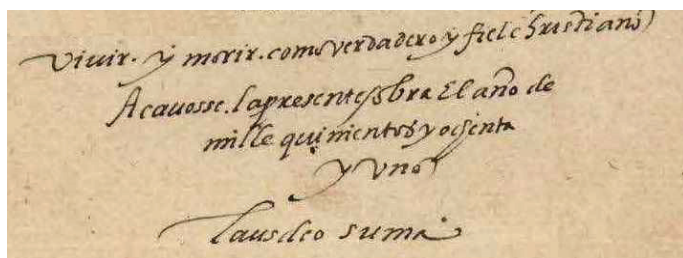 Viuir. y morir. como verdadero y fiel christiano
Acauosse. la presente obra El año de
mille quinientos y ochenta
y Vno
Laus deo suma